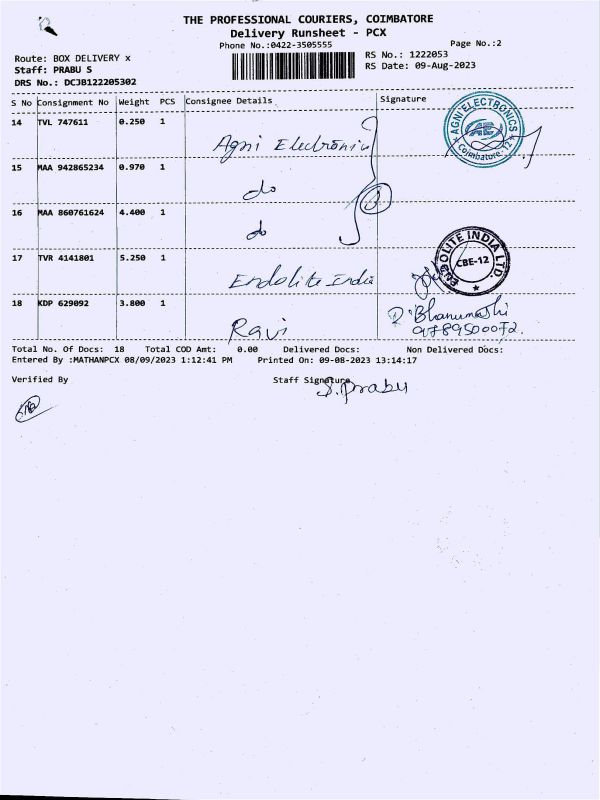 THE PROFESSIONAL COURIERS, COIMBATORE
Delivery Runsheet - PCX
Phone No.:0422-3505555
Page No.:2
Route: BOX DELIVERY x
RS No.: 1222053
Staff: PRABU S
RS Date: 09-Aug-2023
DRS No.: DCJB122205302
S No Consignment No Weight PCS Consignee Details Signature
14 TVL 747611 0.250 1
Agni Electronics
AGNI ELECTRONICS
AE
Coimbatore-12
15 MAA 942865234 0.970 1
do
3
16 MAA 860761624 4.400 1
do
17 TVR 4141801 5.250 1
Endolite India
ENDOLITE INDIA LTD.
CBE-12
18 KDP 629092 3.800 1
Ravi
Total No. Of Docs: 18 Total COD Amt: 0.00 Delivered Docs: Non Delivered Docs:
Entered By :MATHANPCX 08/09/2023 1:12:41 PM Printed On: 09-08-2023 13:14:17
Verified By
Staff Signature
S. Prabu